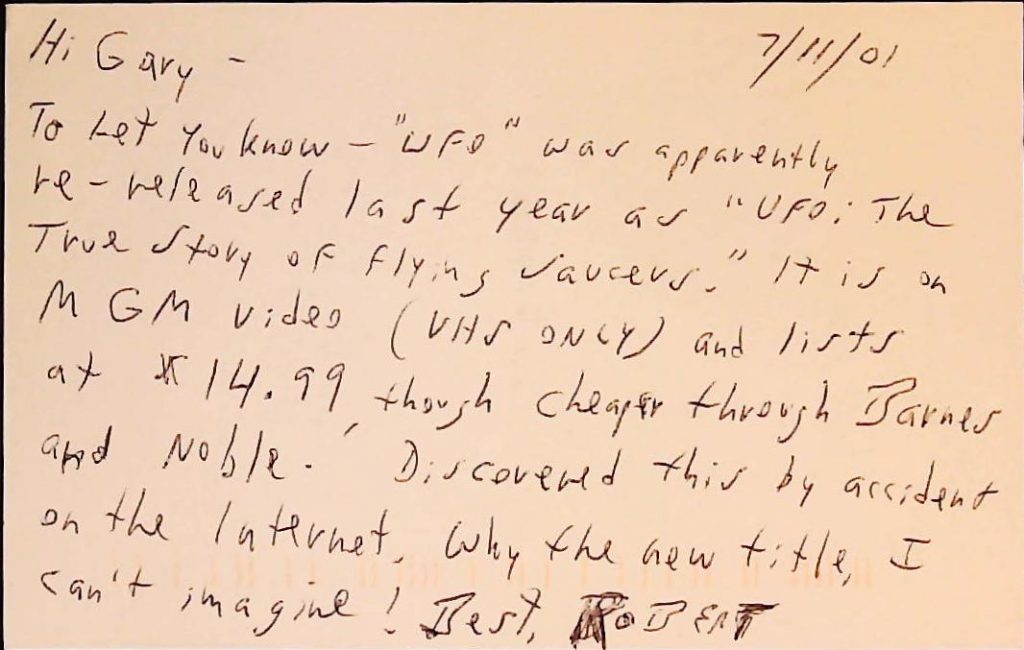 Hi Gary - 7/11/01
To Let You know - "UFO" was apparently
re-released last year as "UFO: The
True Story of Flying Saucers." It is on
MGM video (VHS ONLY) and lists
at $14.99, though cheaper through Barnes
and Noble. Discovered this by accident
on the Internet. Why the new title, I
can't imagine! Best, ROBERT